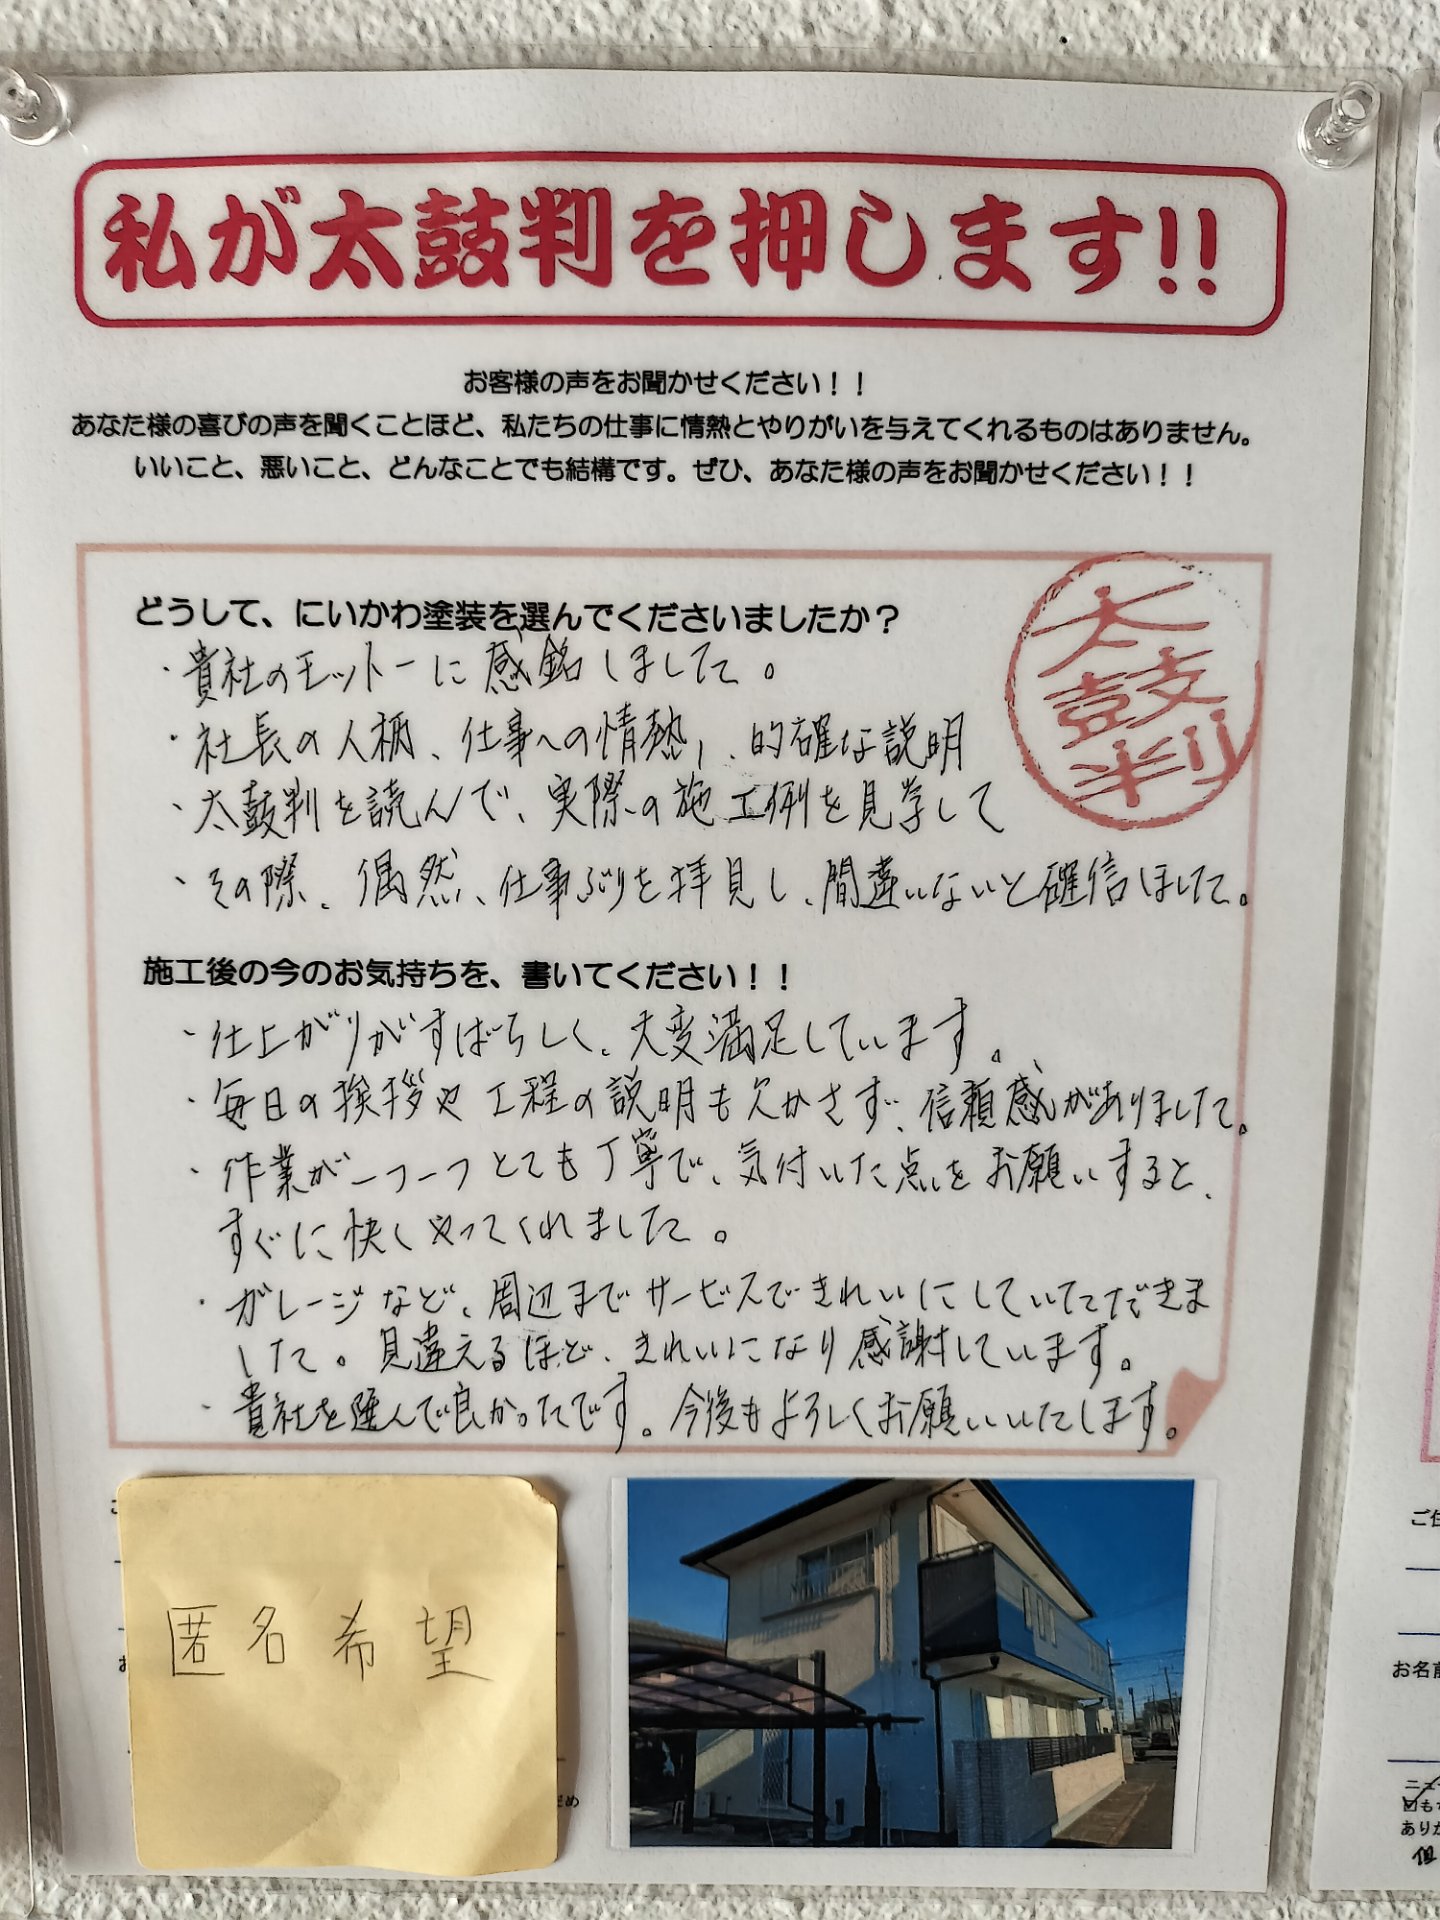 私が太鼓判を押します!!
お客様の声をお聞かせください！！
あなた様の喜びの声を聞くことほど、私たちの仕事に情熱とやりがいを与えてくれるものはありません。
いいこと、悪いこと、どんなことでも結構です。ぜひ、あなた様の声をお聞かせください！！
太鼓判
どうして、にいかわ塗装を選んでくださいましたか？
・貴社のモットーに感銘しました。
・社長の人柄、仕事への情熱、的確な説明
・太鼓判を読んで、実際の施工例を見学して
・その際、偶然、仕事ぶりを拝見し、間違いないと確信しました。
施工後の今のお気持ちを、書いてください！！
・仕上がりがすばらしく、大変満足しています。
・毎日の挨拶や工程の説明も欠かさず、信頼感がありました。
・作業が一つ一つとても丁寧で、気付いた点をお願いすると、
すぐに快くやってくれました。
・ガレージなど、周辺までサービスできれいにしていただきま
した。見違えるほど、きれいになり感謝しています。
・貴社を選んで良かったです。今後もよろしくお願いいたします。
匿名希望
だめ
ご住
お名前
ニュー
ありが